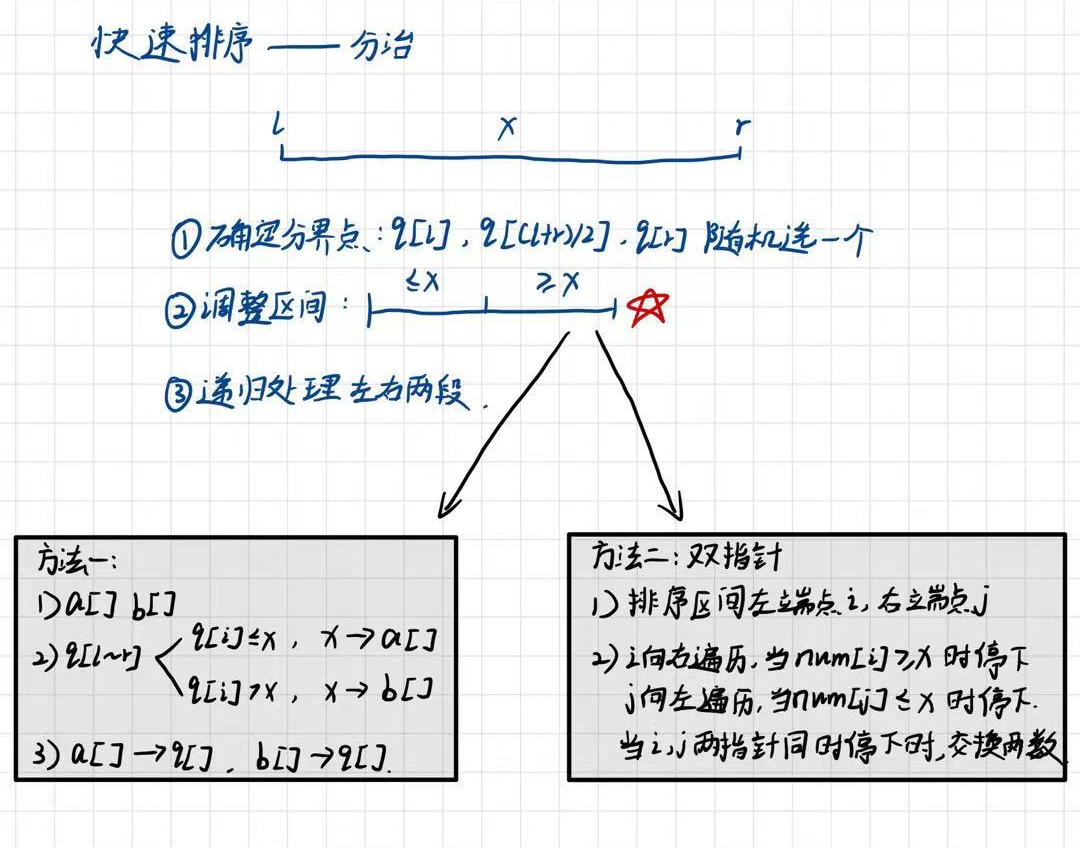 快速排序 —— 分治
l x r
①确定分界点：q[l]，q[(l+r)/2]，q[r] 随机选一个
≤x ≥x
②调整区间：
③递归处理左右两段.
方法一：
1) a[] b[]
q[i]≤x， x→a[]
2) q[l~r]
q[i]>x， x→b[]
3) a[]→q[]，b[]→q[].
方法二：双指针
1) 排序区间左端点i，右端点j
2) i向右遍历，当num[i]≥x时停下
j向左遍历，当num[j]≤x时停下.
当i，j两指针同时停下时，交换两数